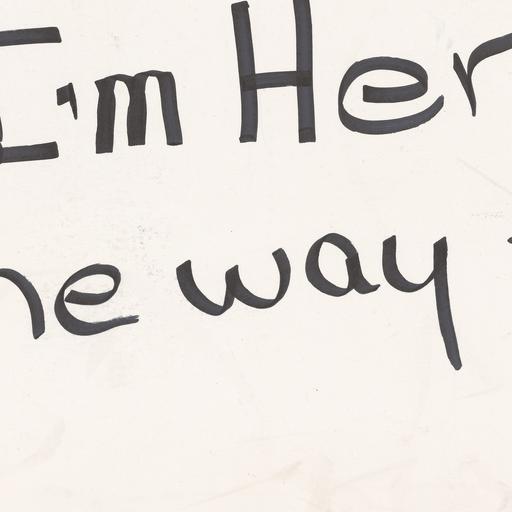 I'm Her
he way